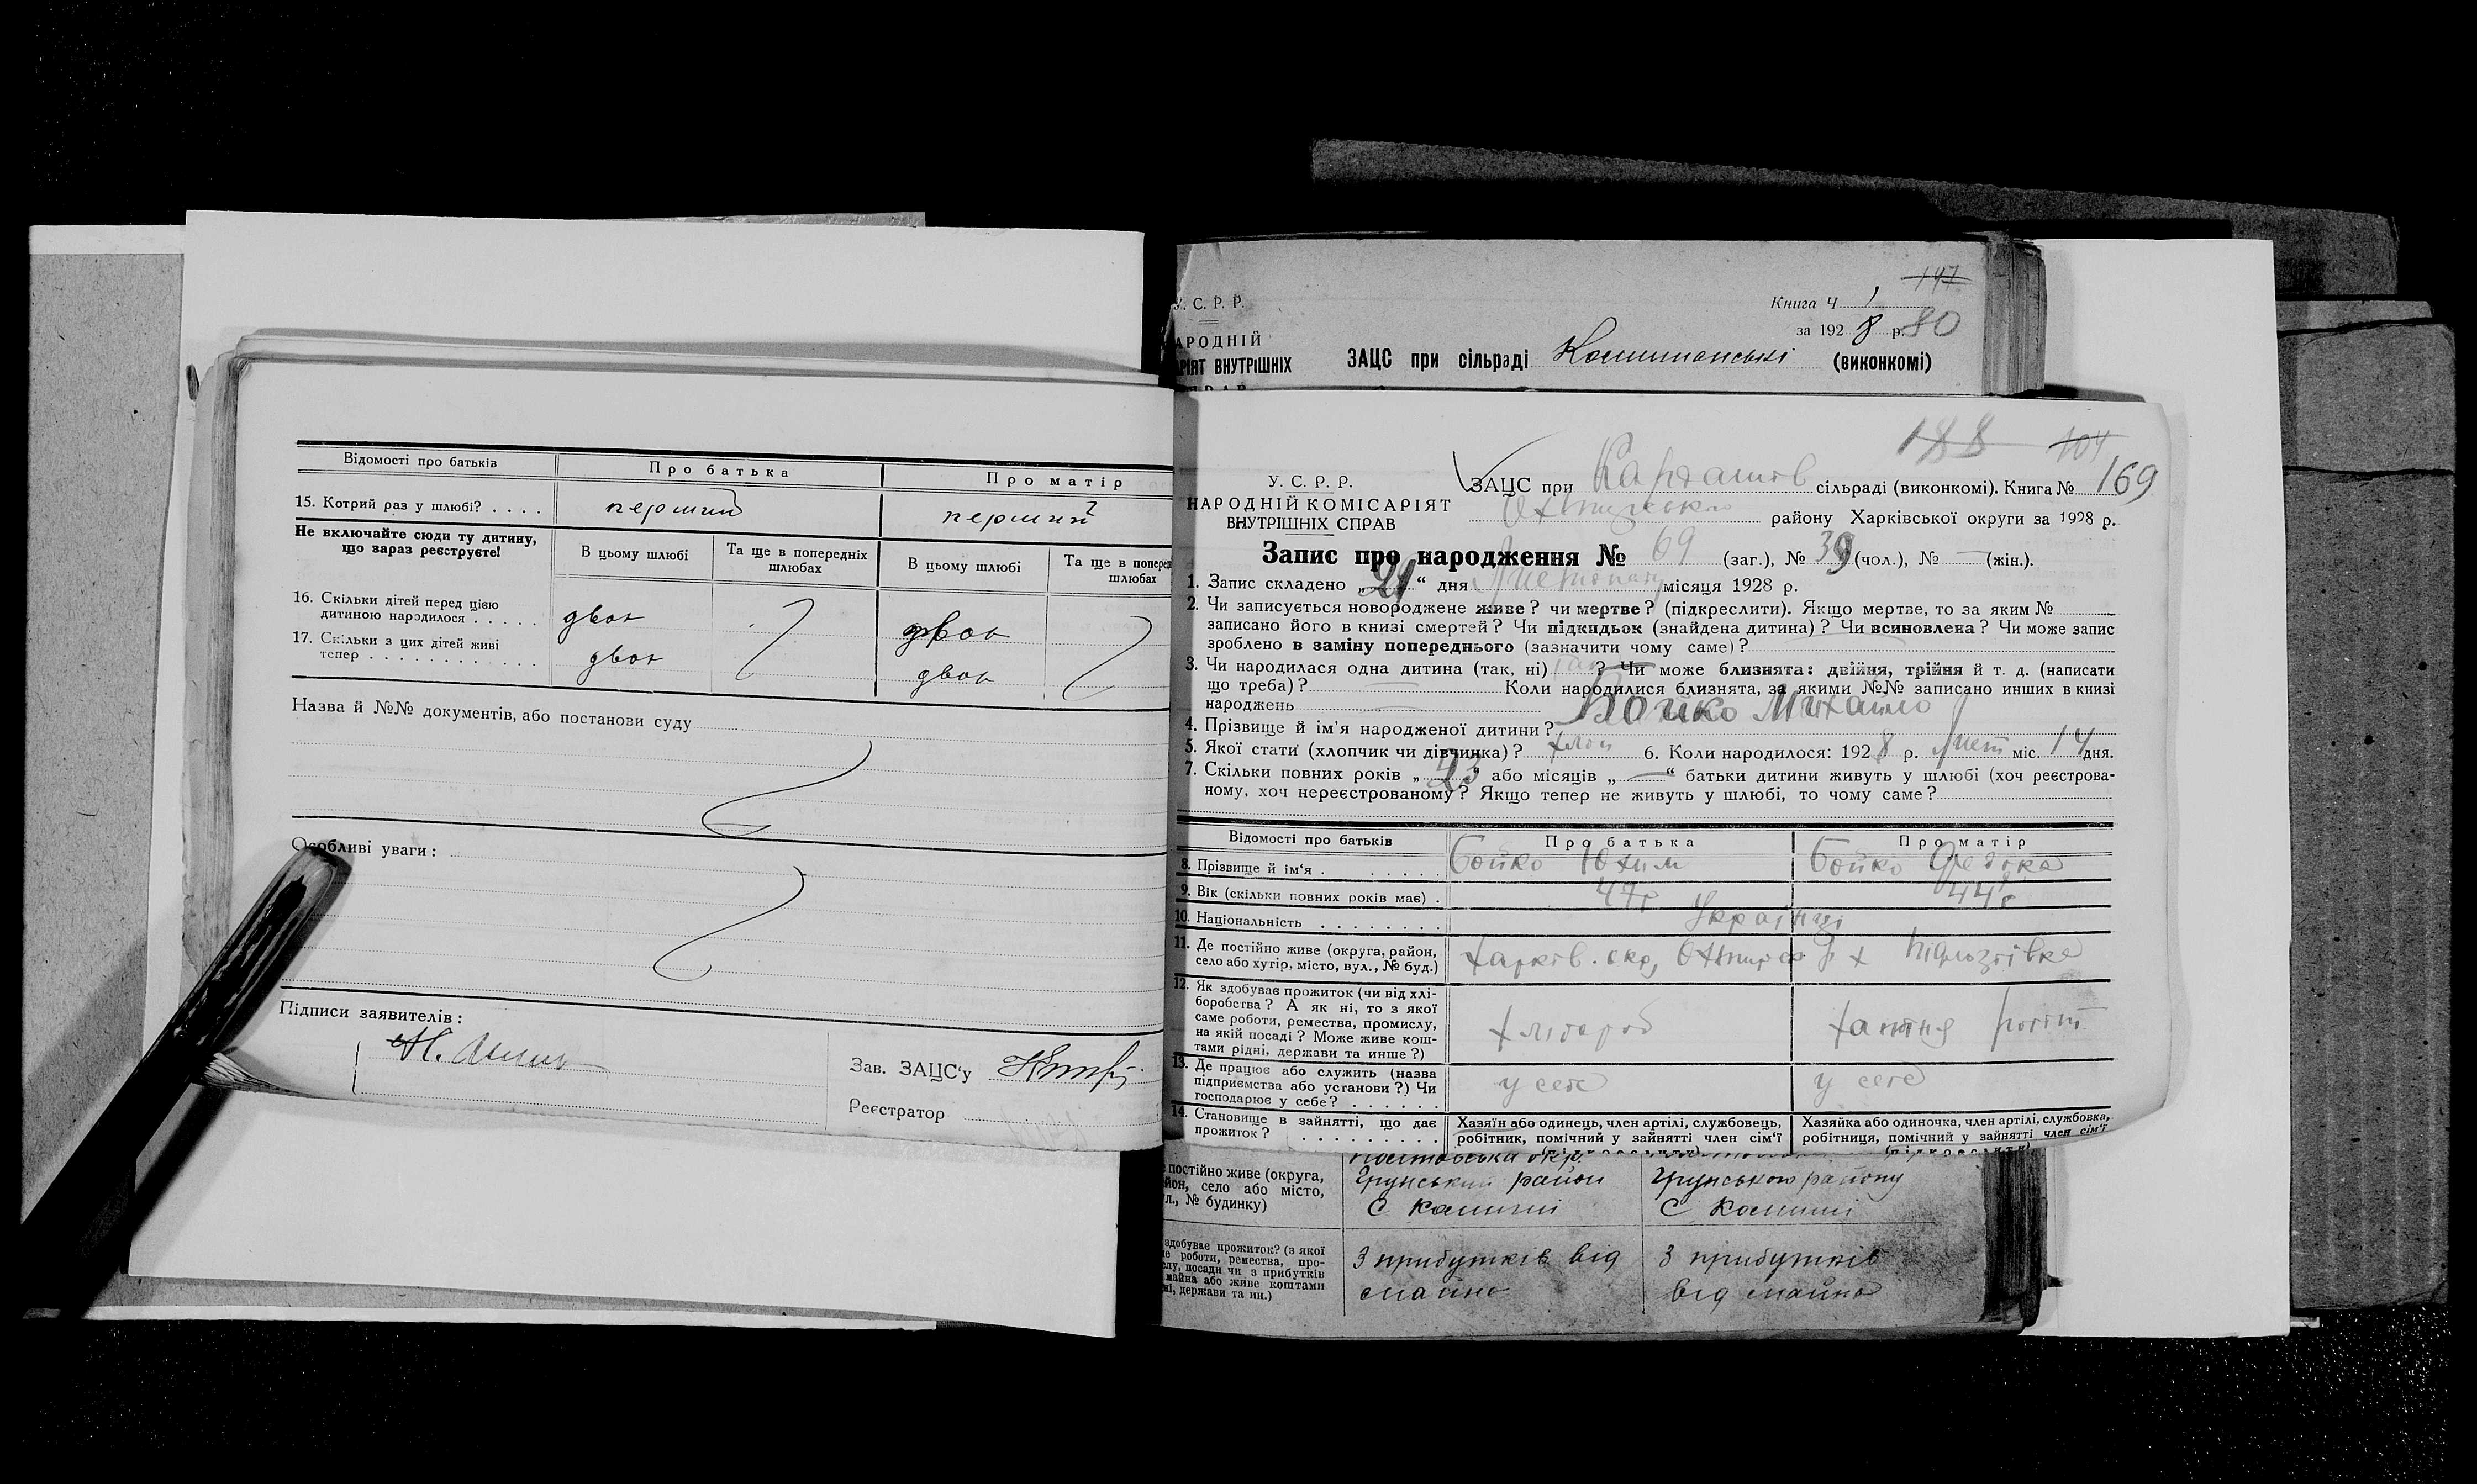 Відомості про батьків Про батька Про матір
15. Котрий раз у шлюбі? . . . . перший перший
Не включайте сюди ту дитину,
що зараз реєструєте!
В цьому шлюбі Та ще в попередніх шлюбах В цьому шлюбі Та ще в поперед шлюбах
16. Скільки дітей перед цією
дитиною народилося . . . . . двох двох
17. Скільки з цих дітей живі
тепер . . . . . . . . . . . . . двох двох
Назва й №№ документів, або постанови суду
Особливі уваги:
Підписи заявителів:
Зав. ЗАЦС'у
Реєстратор
У. С. Р. Р.
АРОДНІЙ
РІЯТ ВНУТРІШНІХ
147
Книга Ч 1
за 1928 р. 80
ЗАЦС при сільраді (виконкомі)
188 104
У. С. Р. Р.
НАРОДНІЙ КОМІСАРІЯТ
ВНУТРІШНІХ СПРАВ
ЗАЦС при сільраді (виконкомі). Книга № 169
району Харківської округи за 1928 р.
Запис про народження № 69 (заг.), № 39 (чол.), № — (жін.).
1. Запис складено „21“ дня Листопаду місяця 1928 р.
2. Чи записується новороджене живе? чи мертве? (підкреслити). Якщо мертве, то за яким №
записано його в книзі смертей? Чи підкидьок (знайдена дитина)? Чи всиновлена? Чи може запис
зроблено в заміну попереднього (зазначити чому саме)?
3. Чи народилася одна дитина (так, ні) так? Чи може близнята: двійня, трійня й т. д. (написати
що треба)? Коли народилися близнята, за якими №№ записано инших в книзі
народжень
4. Прізвище й ім'я народженої дитини? Бойко Михайло
5. Якої статі (хлопчик чи дівчинка)? хлоп 6. Коли народилося: 1928 р. Лист міс. 14 дня.
7. Скільки повних років „23“ або місяців „—“ батьки дитини живуть у шлюбі (хоч реєстрова-
ному, хоч нереєстрованому? Якщо тепер не живуть у шлюбі, то чому саме?
Відомості про батьків Про батька Про матір
8. Прізвище й ім'я . . . . . . Бойко Юхим Бойко
9. Вік (скільки повних років має) . 47р 44р
10. Національність . . . . . . . . Українці
11. Де постійно живе (округа, район,
село або хутір, місто, вул., № буд.) Харків. окр,
12. Як здобуває прожиток (чи від хлі-
боробства? А як ні, то з якої
саме роботи, ремества, промислу,
на якій посаді? Може живе кош-
тами рідні, держави та инше?) хлібороб
13. Де працює або служить (назва
підприємства або установи?) Чи
господарює у себе? . . . . . . у себе у себе
14. Становище в зайнятті, що дає
прожиток? . . . . . . . . . .
Хазяїн або одинець, член артілі, службовець,
робітник, помічний у зайнятті член сім'ї
Хазяйка або одиночка, член артілі, службовка,
робітниця, помічний у зайнятті член сім'ї
(підкреслити) (підкреслити)
постійно живе (округа,
йон, село або місто,
л., № будинку)
Грунський район Грунського району
с Комиші с Комиші
здобуває прожиток? (з якої
е роботи, ремества, про-
слу, посади чи з прибутків
майна або живе коштами
ні, держави та ин.)
З прибутків від З прибутків
майна від майна